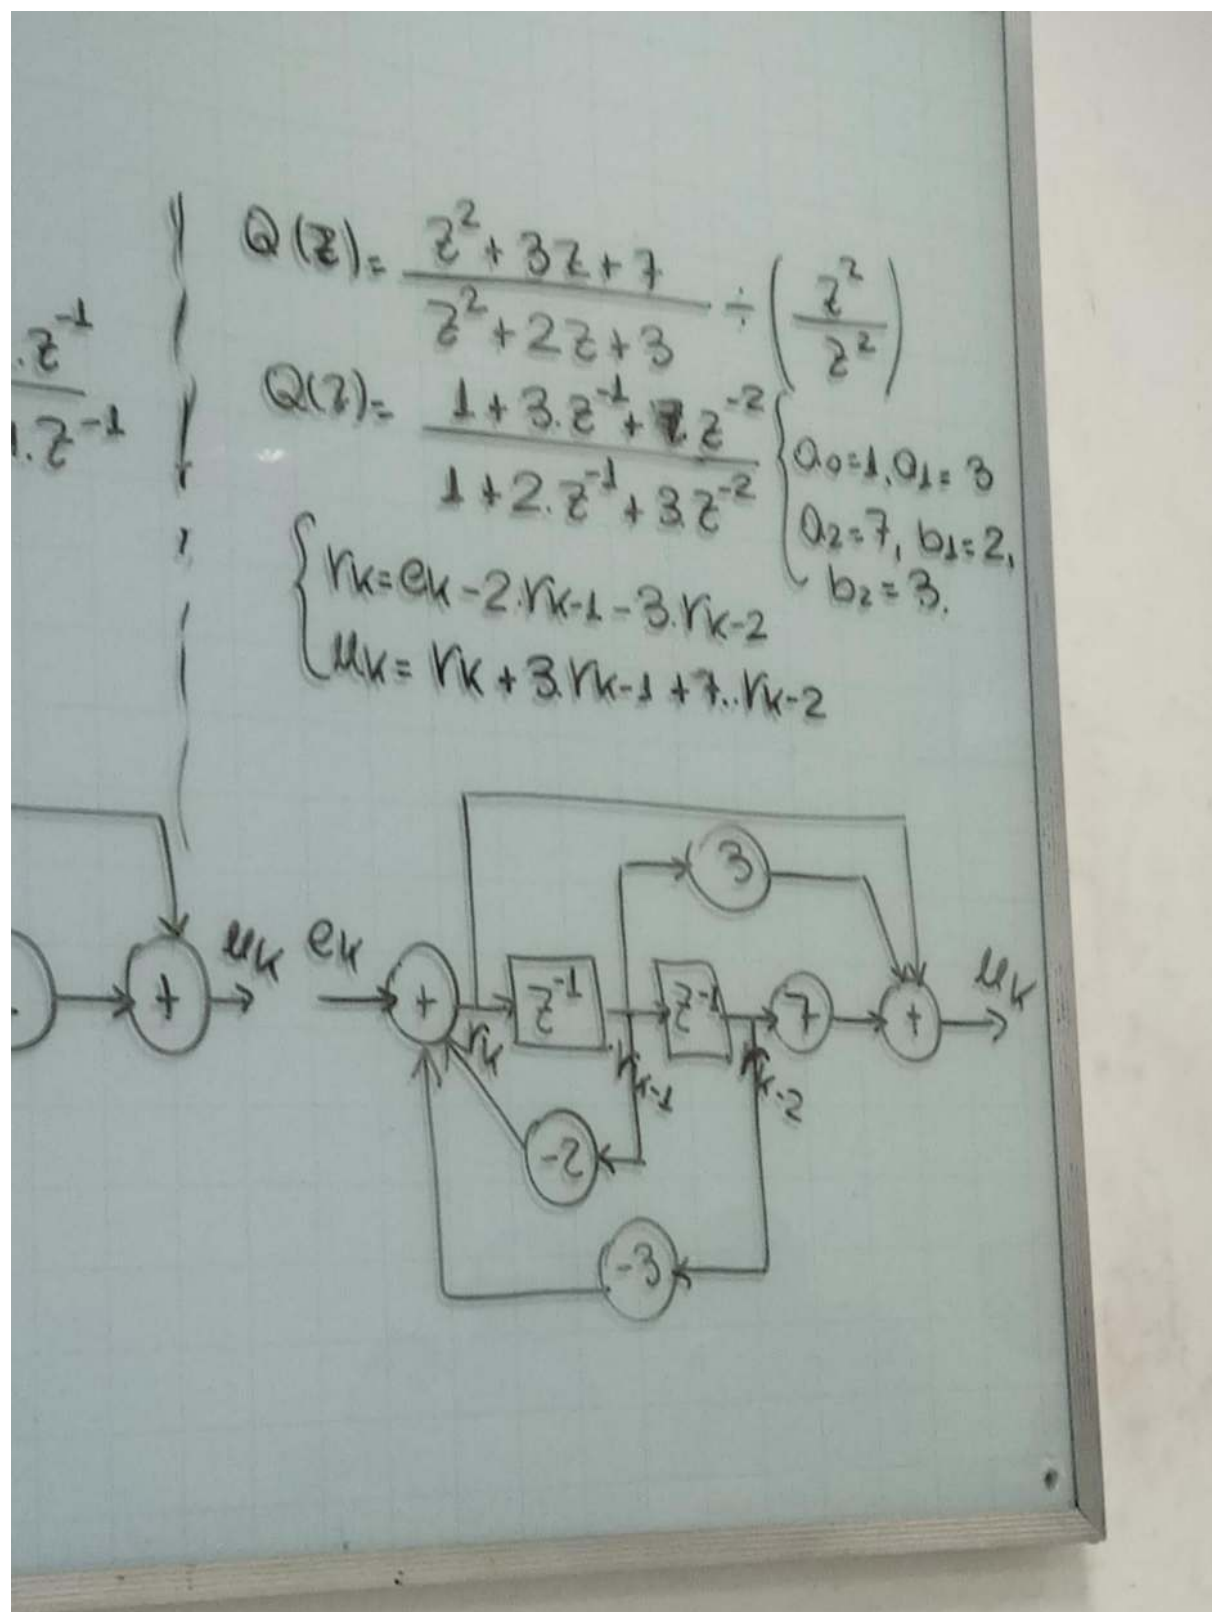 Q(z)= (z²+3z+7)/(z²+2z+3) ÷ (z²/z²)
.z⁻¹
1.z⁻¹
Q(z)= (1+3.z⁻¹+7.z⁻²)/(1+2.z⁻¹+3.z⁻²)
a₀=1, a₁=3
a₂=7, b₁=2,
b₂=3.
rₖ=eₖ-2.rₖ₋₁-3.rₖ₋₂
uₖ=rₖ+3.rₖ₋₁+7..rₖ₋₂
3
+ uₖ eₖ + rₖ z⁻¹ rₖ₋₁ z⁻¹ rₖ₋₂ 7 + uₖ
-2
-3